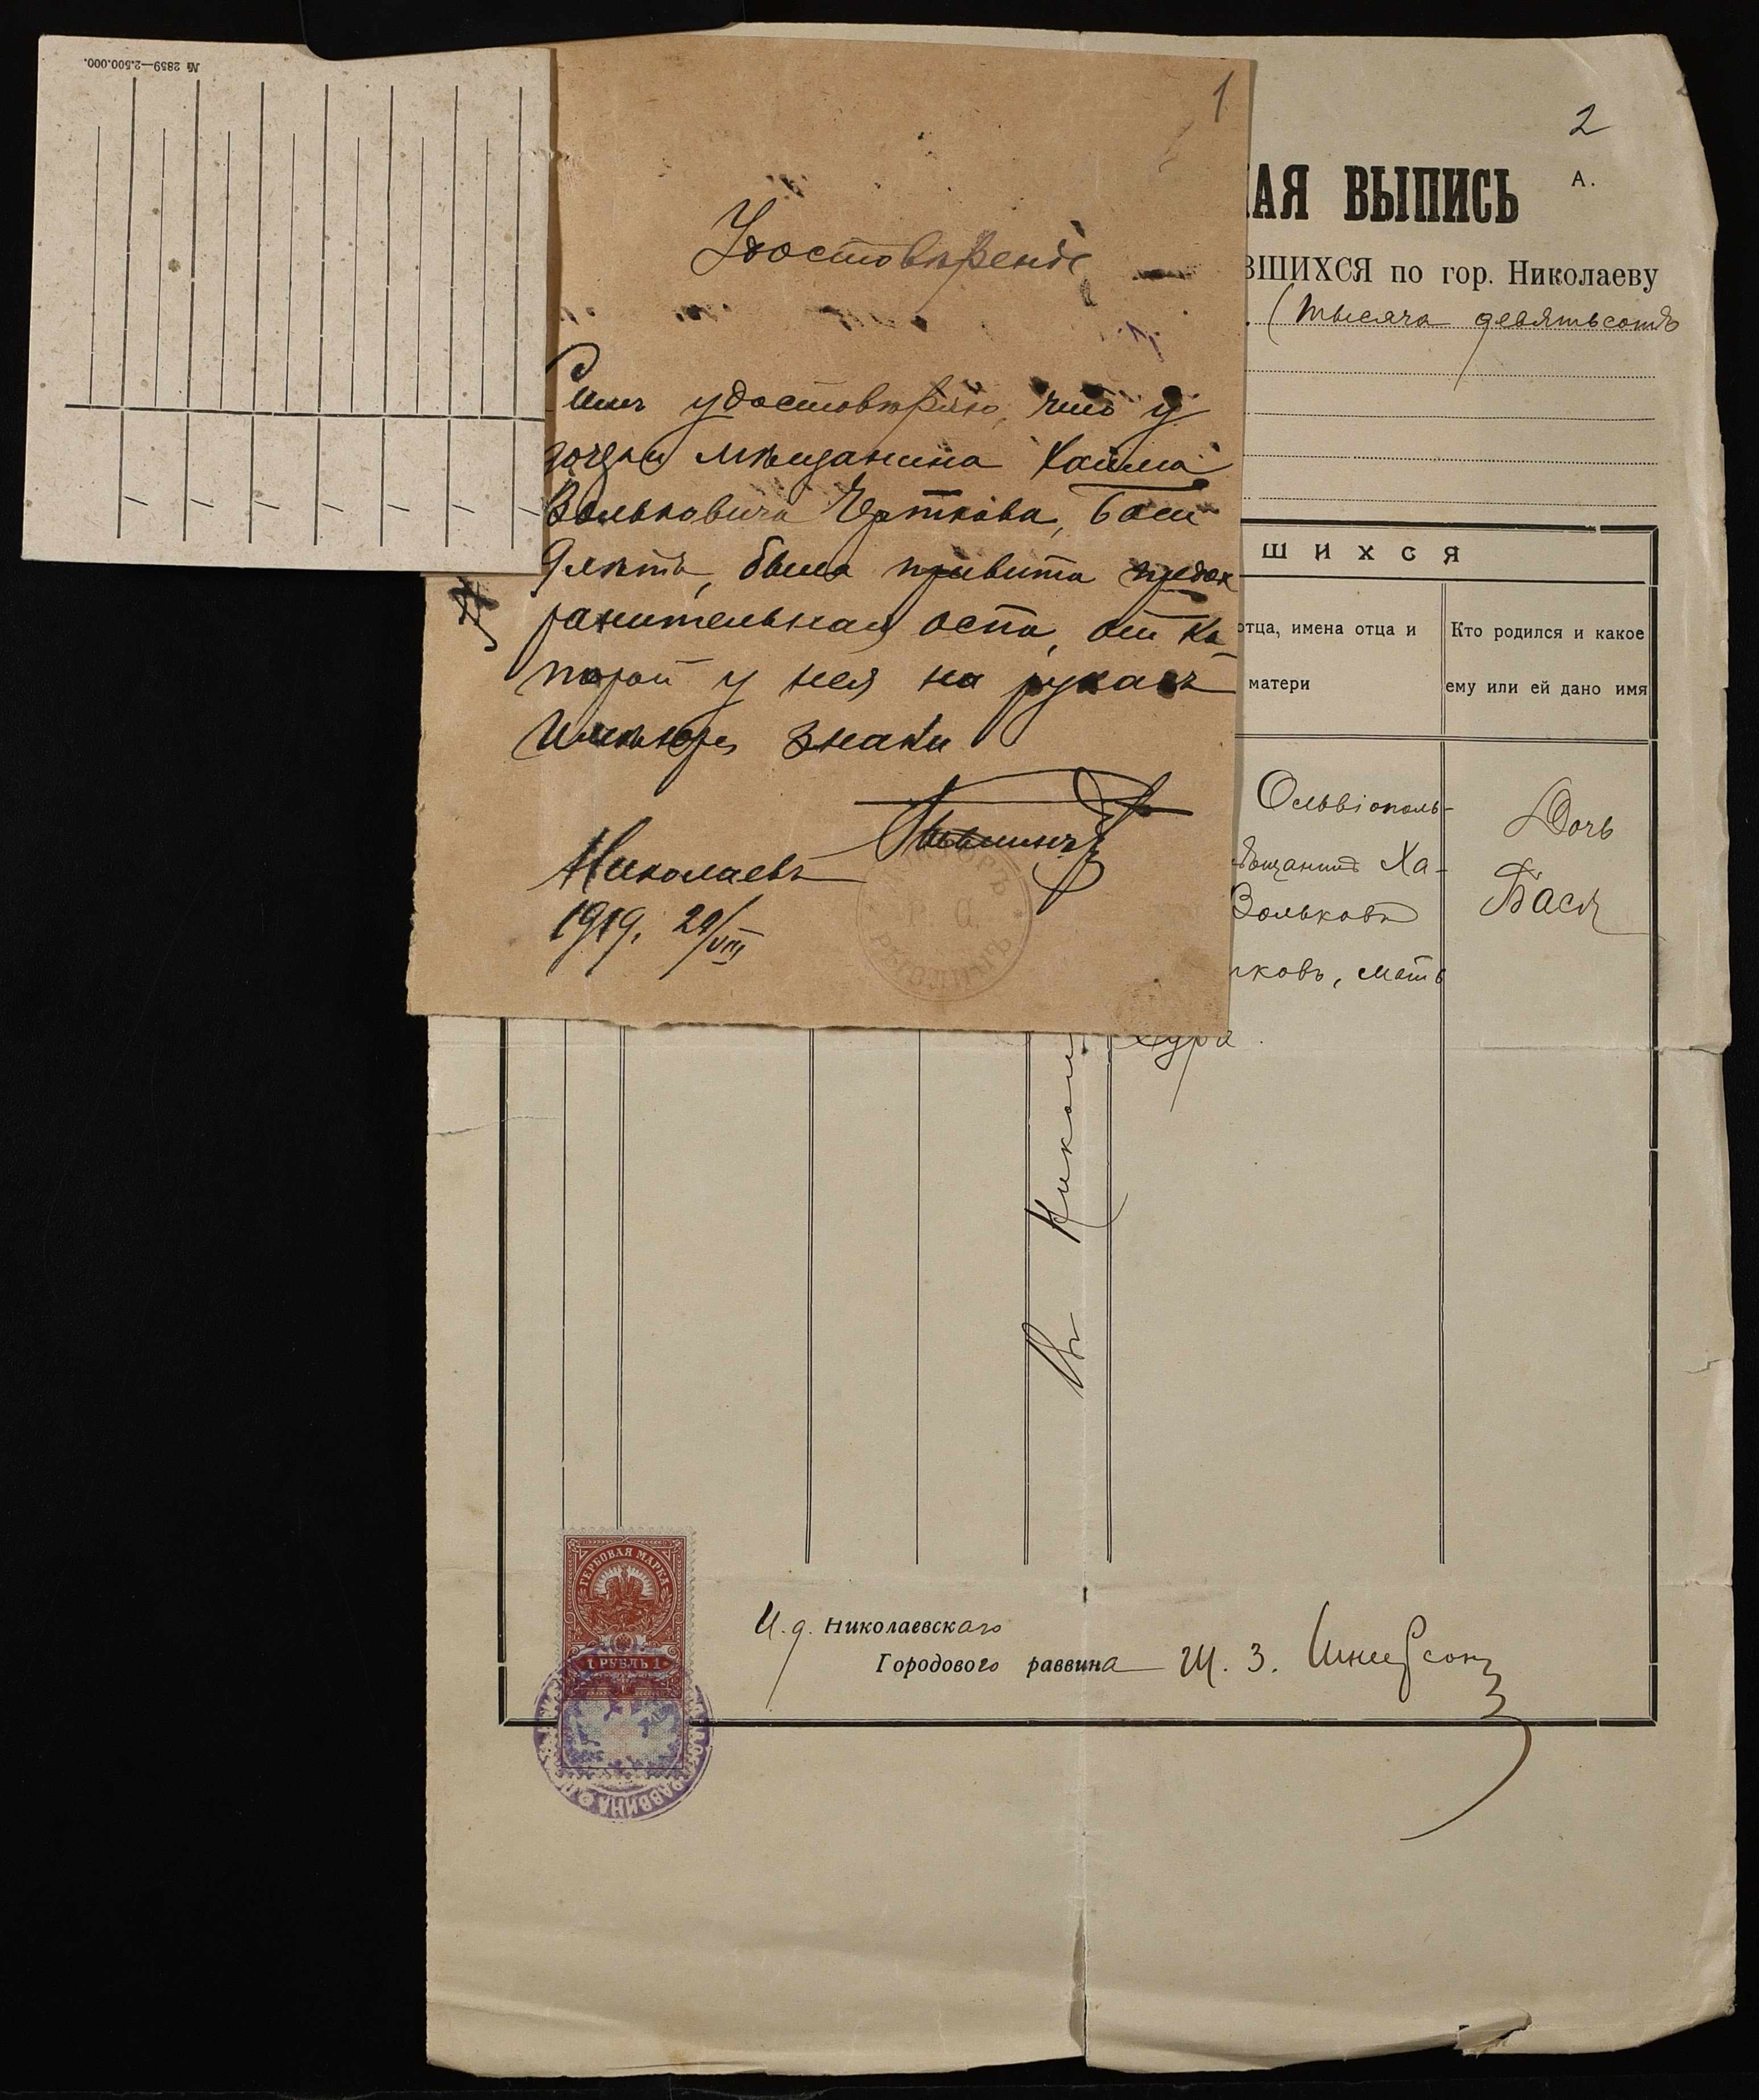 № 2859—2.500.000.
1
Удостовѣренiе
Симъ удостовѣряю, что у
дочери мѣщанина Хаима
Вольковича Черткова, Баси
9 лѣтъ, была привита предох
ранительная оспа, от ко_
торой у нея на рукахъ
имѣются знаки
Николаевъ
1919. 20/VIII
ДОКТОРЪ
Р. С.
2
АЯ ВЫПИСЬ
А.
ВШИХСЯ по гор. Николаеву
(тысяча девятьсотъ
ШИХСЯ
отца, имена отца и
матери
Кто родился и какое
ему или ей дано имя
Ольвіополь-
ѣщанинъ Ха-
Вольковъ
ковъ, мать
Сура.
Дочь
Бася
Въ Никол
ГЕРБОВАЯ МАРКА
1 РУБЛЬ 1
РАВВИНА
И. д. Николаевскаго
Городового раввина Ш. З. Шнеерсонъ